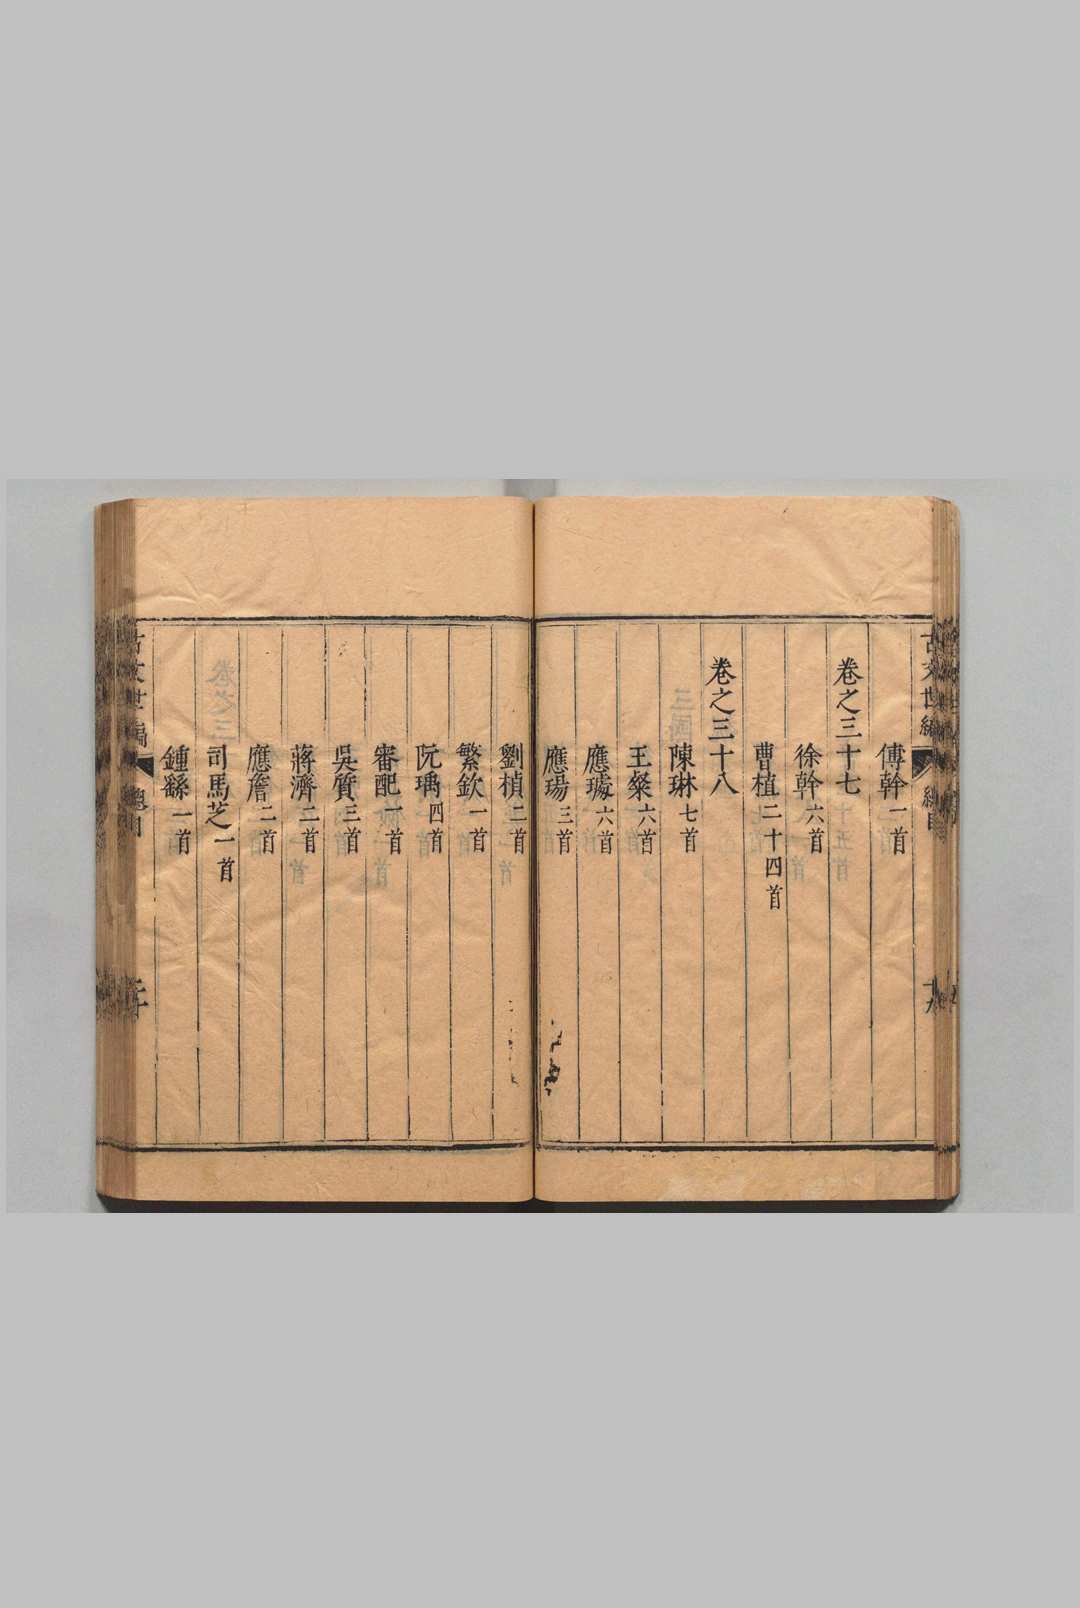 古文世編
總目
十九
傅幹一首
卷之三十七
徐幹六首
曹植二十四首
卷之三十八
陳琳七首
王粲六首
應璩六首
應瑒三首
劉楨二首
繁欽一首
阮瑀四首
審配一首
吳質三首
蔣濟二首
應詹二首
司馬芝一首
鍾繇一首
古文世編
總目
二十